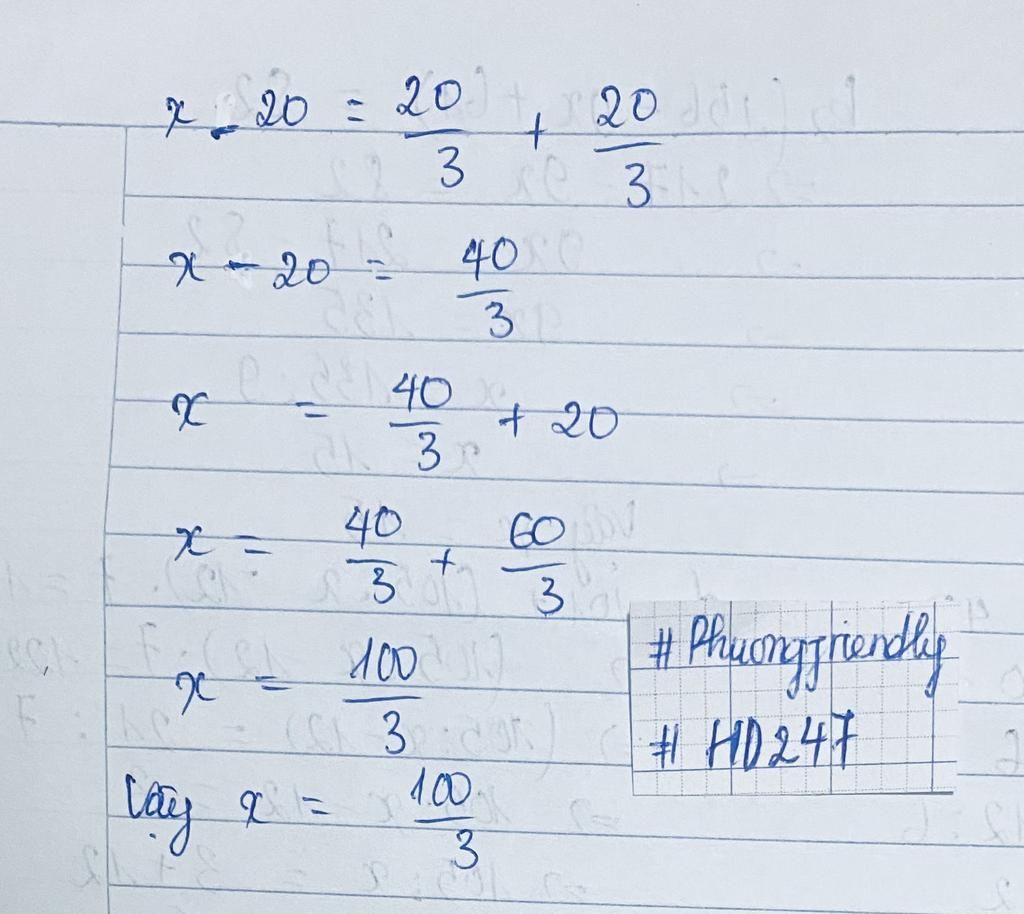 x - 20 = 20/3 + 20/3
x - 20 = 40/3
x = 40/3 + 20
x = 40/3 + 60/3
x = 100/3
Vậy x = 100/3
# Phuongfriendly
# HD247